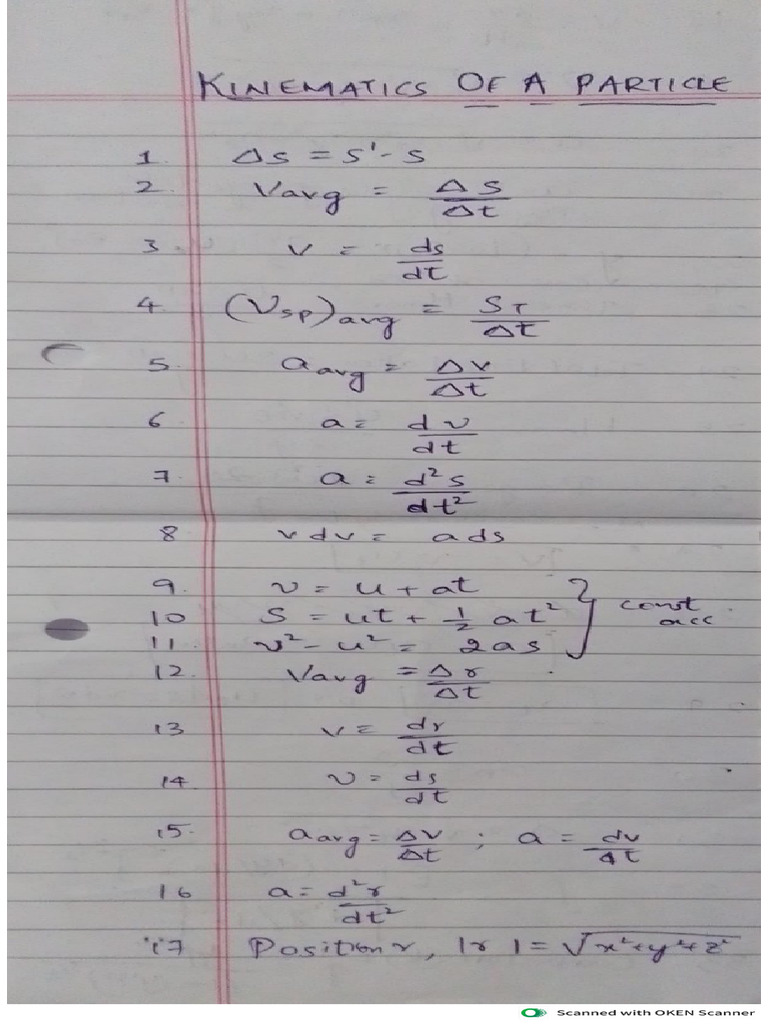 KINEMATICS OF A PARTICLE
1. Δs = s' - s
2. Vavg = Δs/Δt
3. v = ds/dt
4. (Vsp)avg = ST/Δt
5. aavg = Δv/Δt
6. a = dv/dt
7. a = d²s/dt²
8. vdv = ads
9. v = u + at
10. S = ut + 1/2 at² } const acc.
11. v² - u² = 2as
12. Vavg = Δr/Δt
13. v = dr/dt
14. v = ds/dt
15. aavg = Δv/Δt ; a = dv/dt
16. a = d²r/dt²
17. Position r, |r| = √x²+y²+z²
Scanned with OKEN Scanner